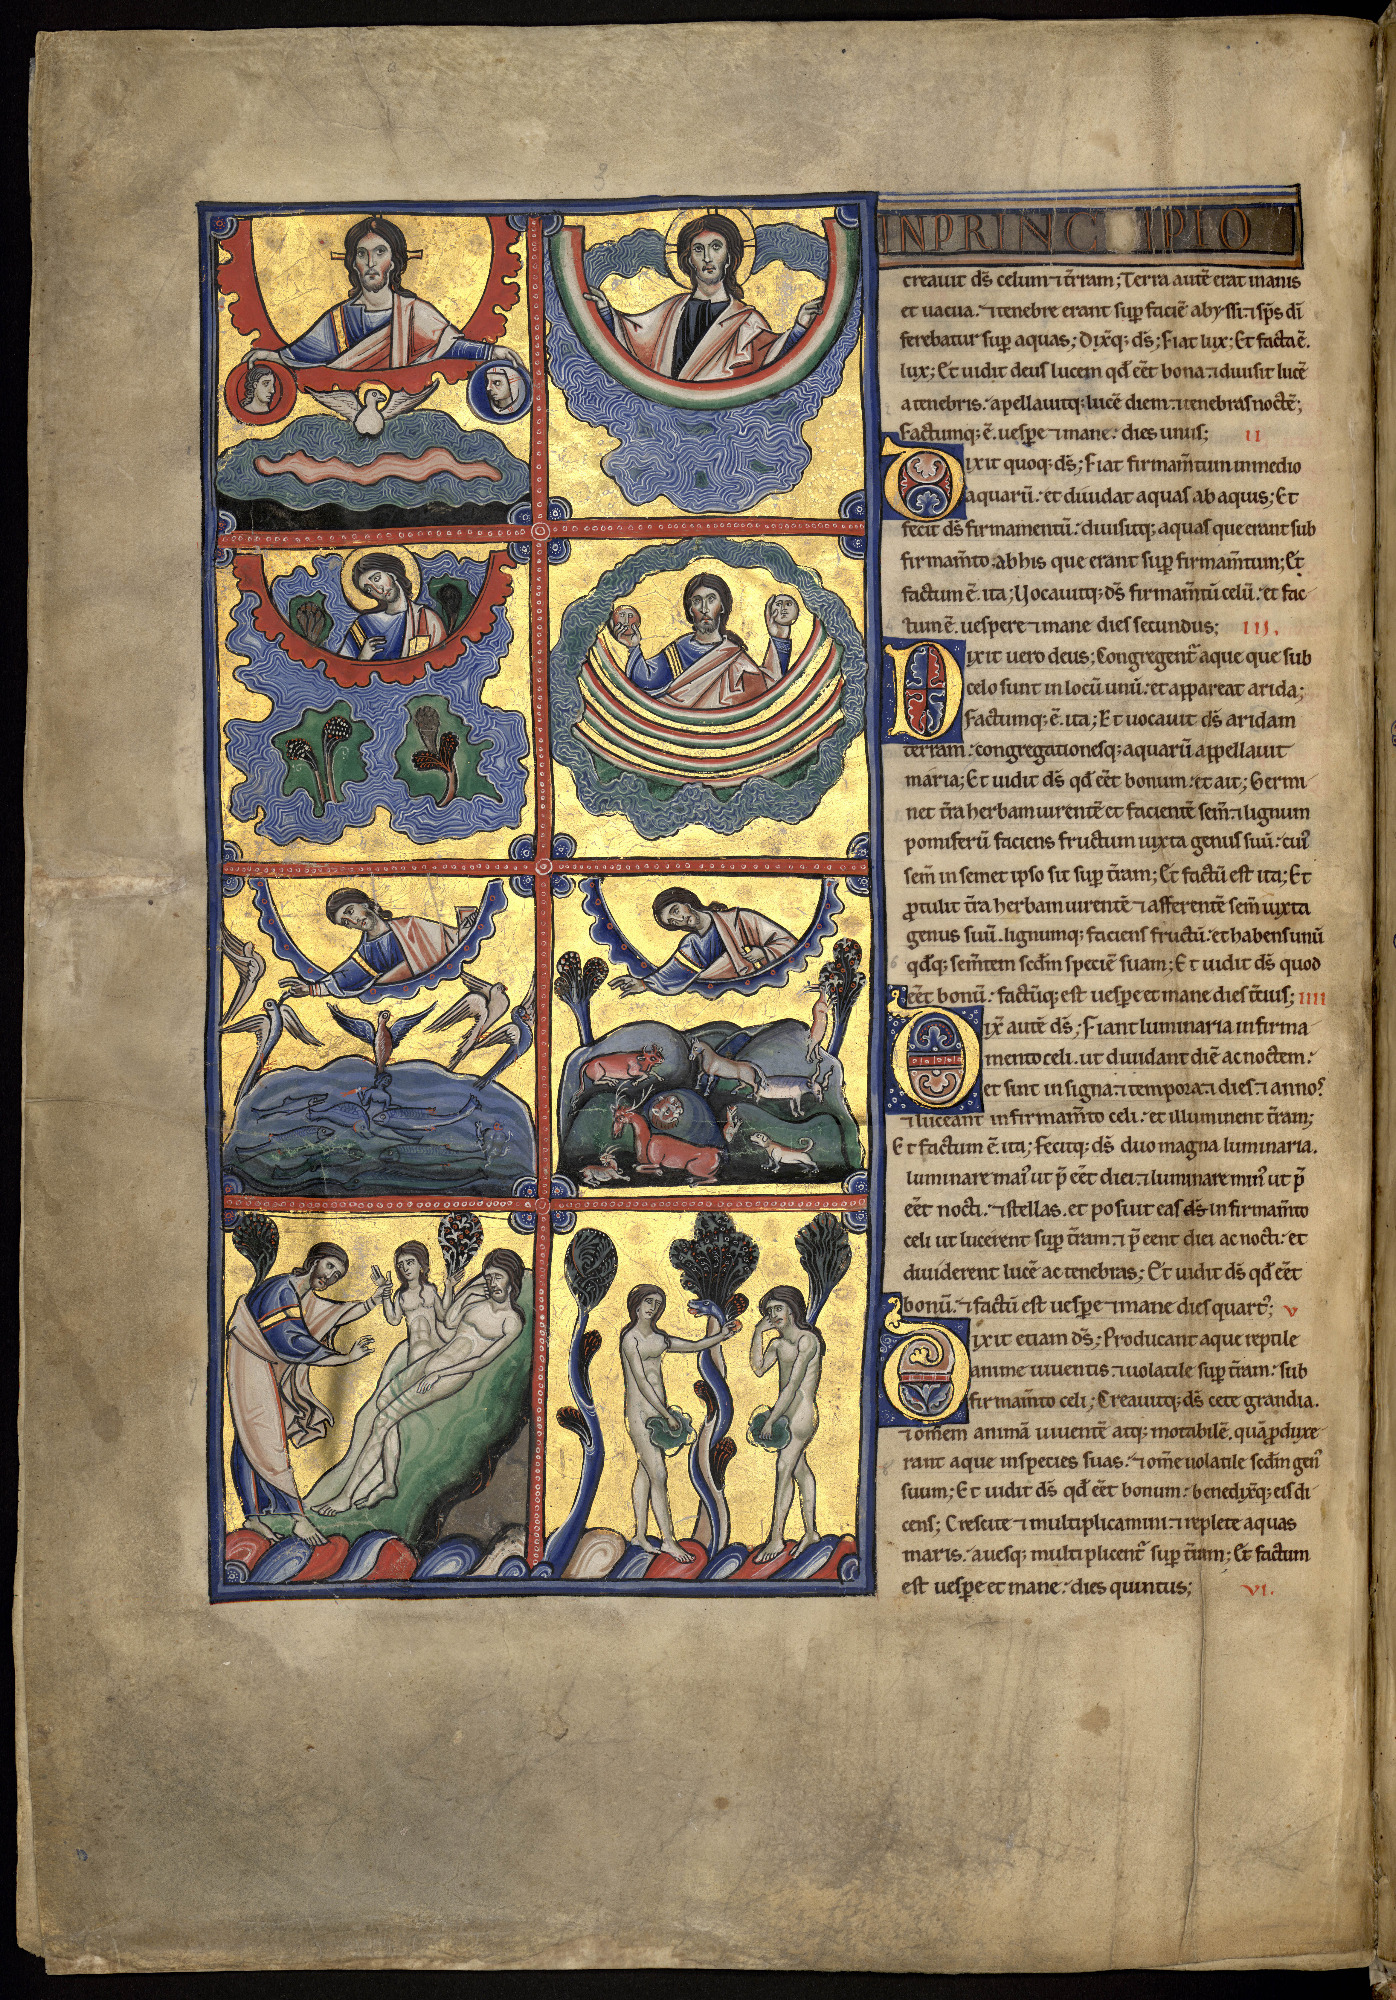 INPRINCIPIO
creauit ds̄ celum ⁊ t̄ram; Terra autē erat inanis
et uacua. ⁊ tenebre erant sup̱ faciē abyssi. ⁊ sp̄s dn̄i
ferebatur sup̱ aquas; Dixq̄; ds̄; Fiat lux; Et facta ē.
lux; Et uidit deus lucem qđ eēt bona. ⁊ diuisit lucē
a tenebris. apellauitq; lucē diem. ⁊ tenebras noctē;
Factumq; ē. uesp̱e ⁊ mane. dies unus; II
Dixit quoq; ds̄; Fiat firmam̄tum in medio
aquarū. et diuidat aquas ab aquis; Et
fecit ds̄ firmamentū. diuisitq; aquas que erant sub
firmam̄to. ab his que erant sup̱ firmam̄tum; Et
factum ē. ita; Vocauitq; ds̄ firmam̄tū celū. et fac
tum ē. uespere ⁊ mane dies secundus; III.
Dixit uero deus; Congregent̄ aque que sub
celo sunt in locū unū. et appareat arida;
Factumq; ē. ita; Et uocauit ds̄ aridam
terram. congregationesq; aquarū appellauit
maria; Et uidit ds̄ qđ eēt bonum. et ait; Germi
net t̄ra herbam uirentē et facientē sem̄. ⁊ lignum
pomiferū faciens fructum iuxta genus suū. cuiꝰ
sem̄ in semet ipso sit sup̱ t̄ram; Et factū est ita; Et
ꝓtulit t̄ra herbam uirentē ⁊ afferentē sem̄ iuxta
genus suū. lignumq; faciens fructū. et habens unū
qđq; sem̄tem scđm speciē suam; Et uidit ds̄ quod
eēt bonū. factūq; est uesp̱e et mane dies t̄cius; IIII
Dix̄ autē ds̄; Fiant luminaria in firma
mento celi. ut diuidant diē ac noctem.
et sint in signa. ⁊ tempora. ⁊ dies. ⁊ annos
⁊ luceant in firmam̄to celi. et illuminent t̄ram;
Et factum ē. ita; Fecitq; ds̄ duo magna luminaria.
luminare maiꝰ ut p̄eēt diei. ⁊ luminare minꝰ ut p̄
eēt nocti. ⁊ stellas. et posuit eas ds̄ in firmam̄to
celi ut lucerent sup̱ t̄ram. ⁊ p̄eent diei ac nocti. et
diuiderent lucē ac tenebras; Et uidit ds̄ qđ eēt
bonū. ⁊ factū est uesp̱e ⁊ mane dies quartꝰ; V
Dixit etiam ds̄; Producant aque reptile
anime uiuentis. ⁊ uolatile sup̱ t̄ram. sub
firmam̄to celi; Creauitq; ds̄ cete grandia.
⁊ omem animā uiuentē atq; motabilē. quā ꝓduxe
rant aque in species suas. ⁊ om̄e uolatile scđm genꝰ
suum; Et uidit ds̄ qđ eēt bonum. benedix̄q; eis di
cens; Crescite ⁊ multiplicamini. ⁊ replete aquas
maris. auesq; multiplicent̄ sup̱ t̄ram; Et factum
est uesp̱e et mane. dies quintus; VI.